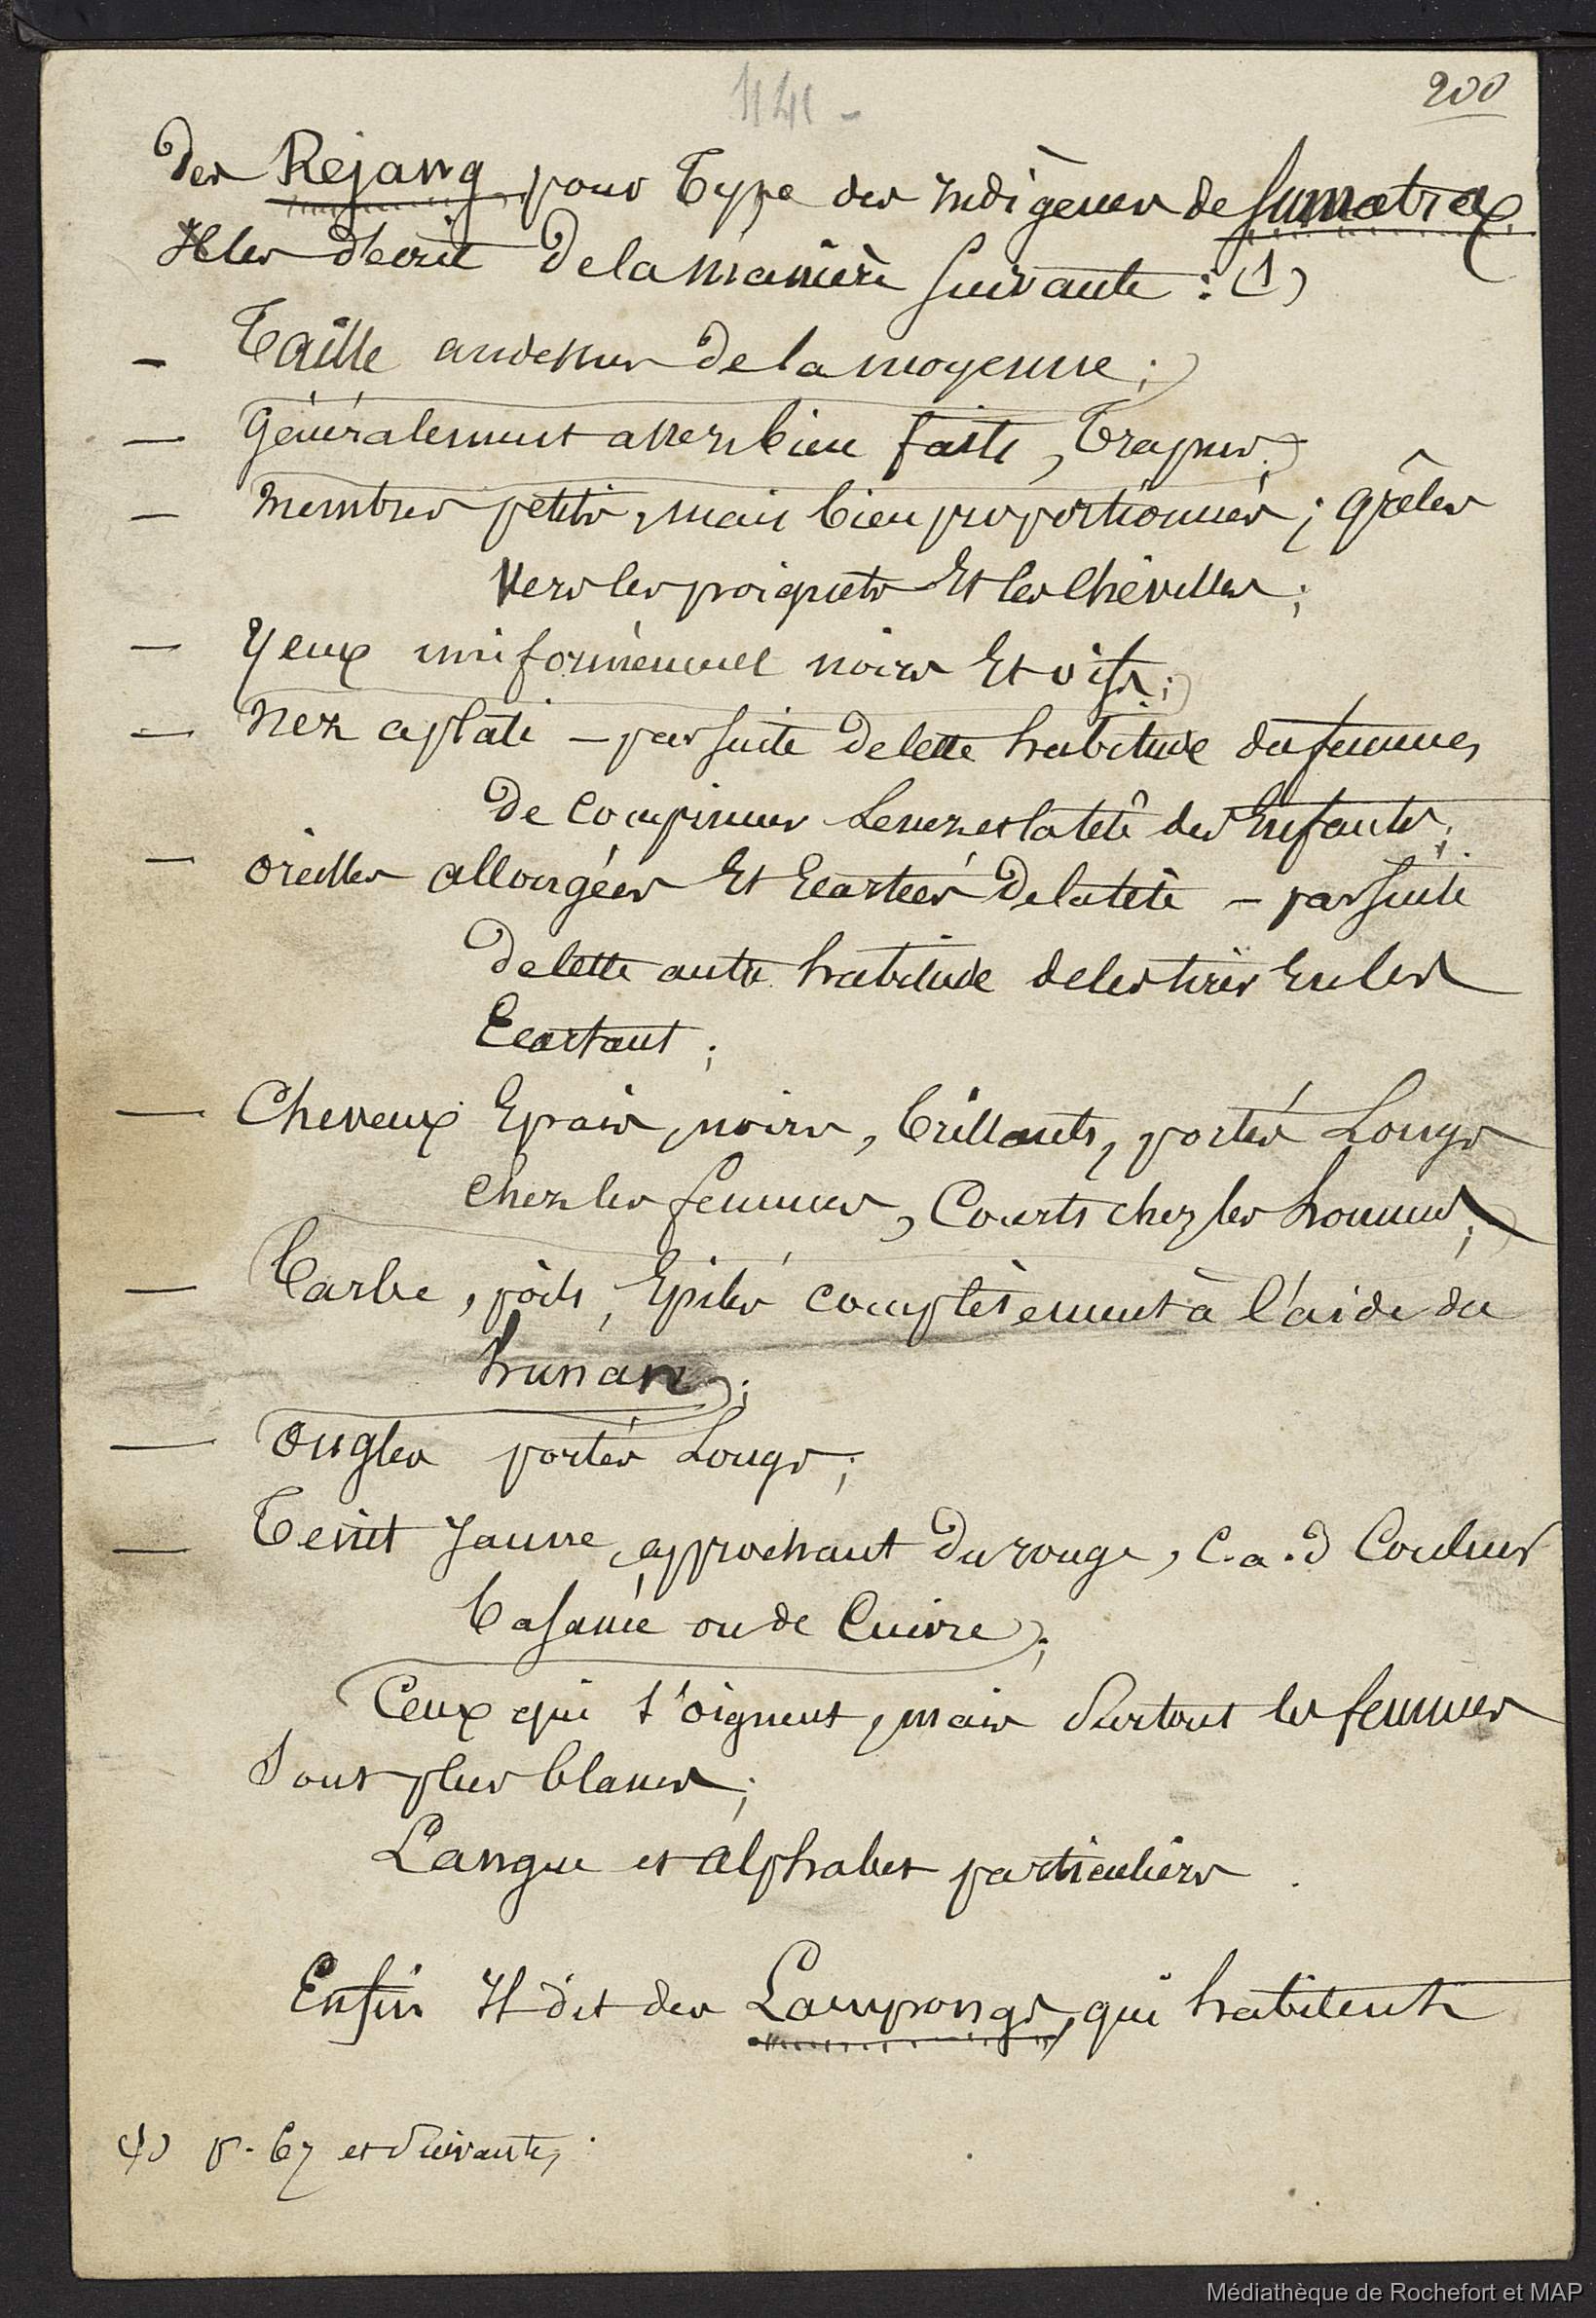 1141 -
200
des Rejang pour Type des indigènes de Sumatra.
Il les décrit de la manière suivante : (1)
— Taille au dessus de la moyenne ;
— Généralement assez bien faits, Trapus ;
— membres petits, mais bien proportionnés ; grêles
vers les poignets Et les Chevilles ;
— Yeux uniformément noirs Et vifs ;
— Nez aplati — par suite de cette habitude des femmes
de comprimer Le nez et la tête des Enfants ;
— oreilles allongées Et Ecartées de la tête — par suite
de cette autre habitude de les tirer En les
Ecartant ;
— Cheveux Epais, noirs, brillants, portés Longs
chez les femmes, Courts chez les hommes ;
— barbe, poils, Epilés complètement à l'aide du
hunan ;
— Ongles portés Longs ;
— Teint Jaune approchant du rouge, c.a.d Couleur
basanée ou de Cuivre ;
Ceux qui s'oignent, mais Surtout les femmes
Sont plus blancs ;
Langue et alphabet particuliers .
Enfin Il dit des Lampongs, qui habitent
(1) p. 67 et Suivantes.
Médiathèque de Rochefort et MAP